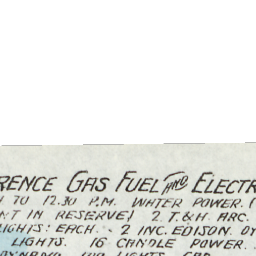 RENCE GAS FUEL AND ELECTR
TO 12.30 P.M. WATER POWER. (
NT IN RESERVE) 2 T.&H. ARC.
IGHTS: EACH. - 2 INC. EDISON. DY
LIGHTS. 16 CANDLE POWER.